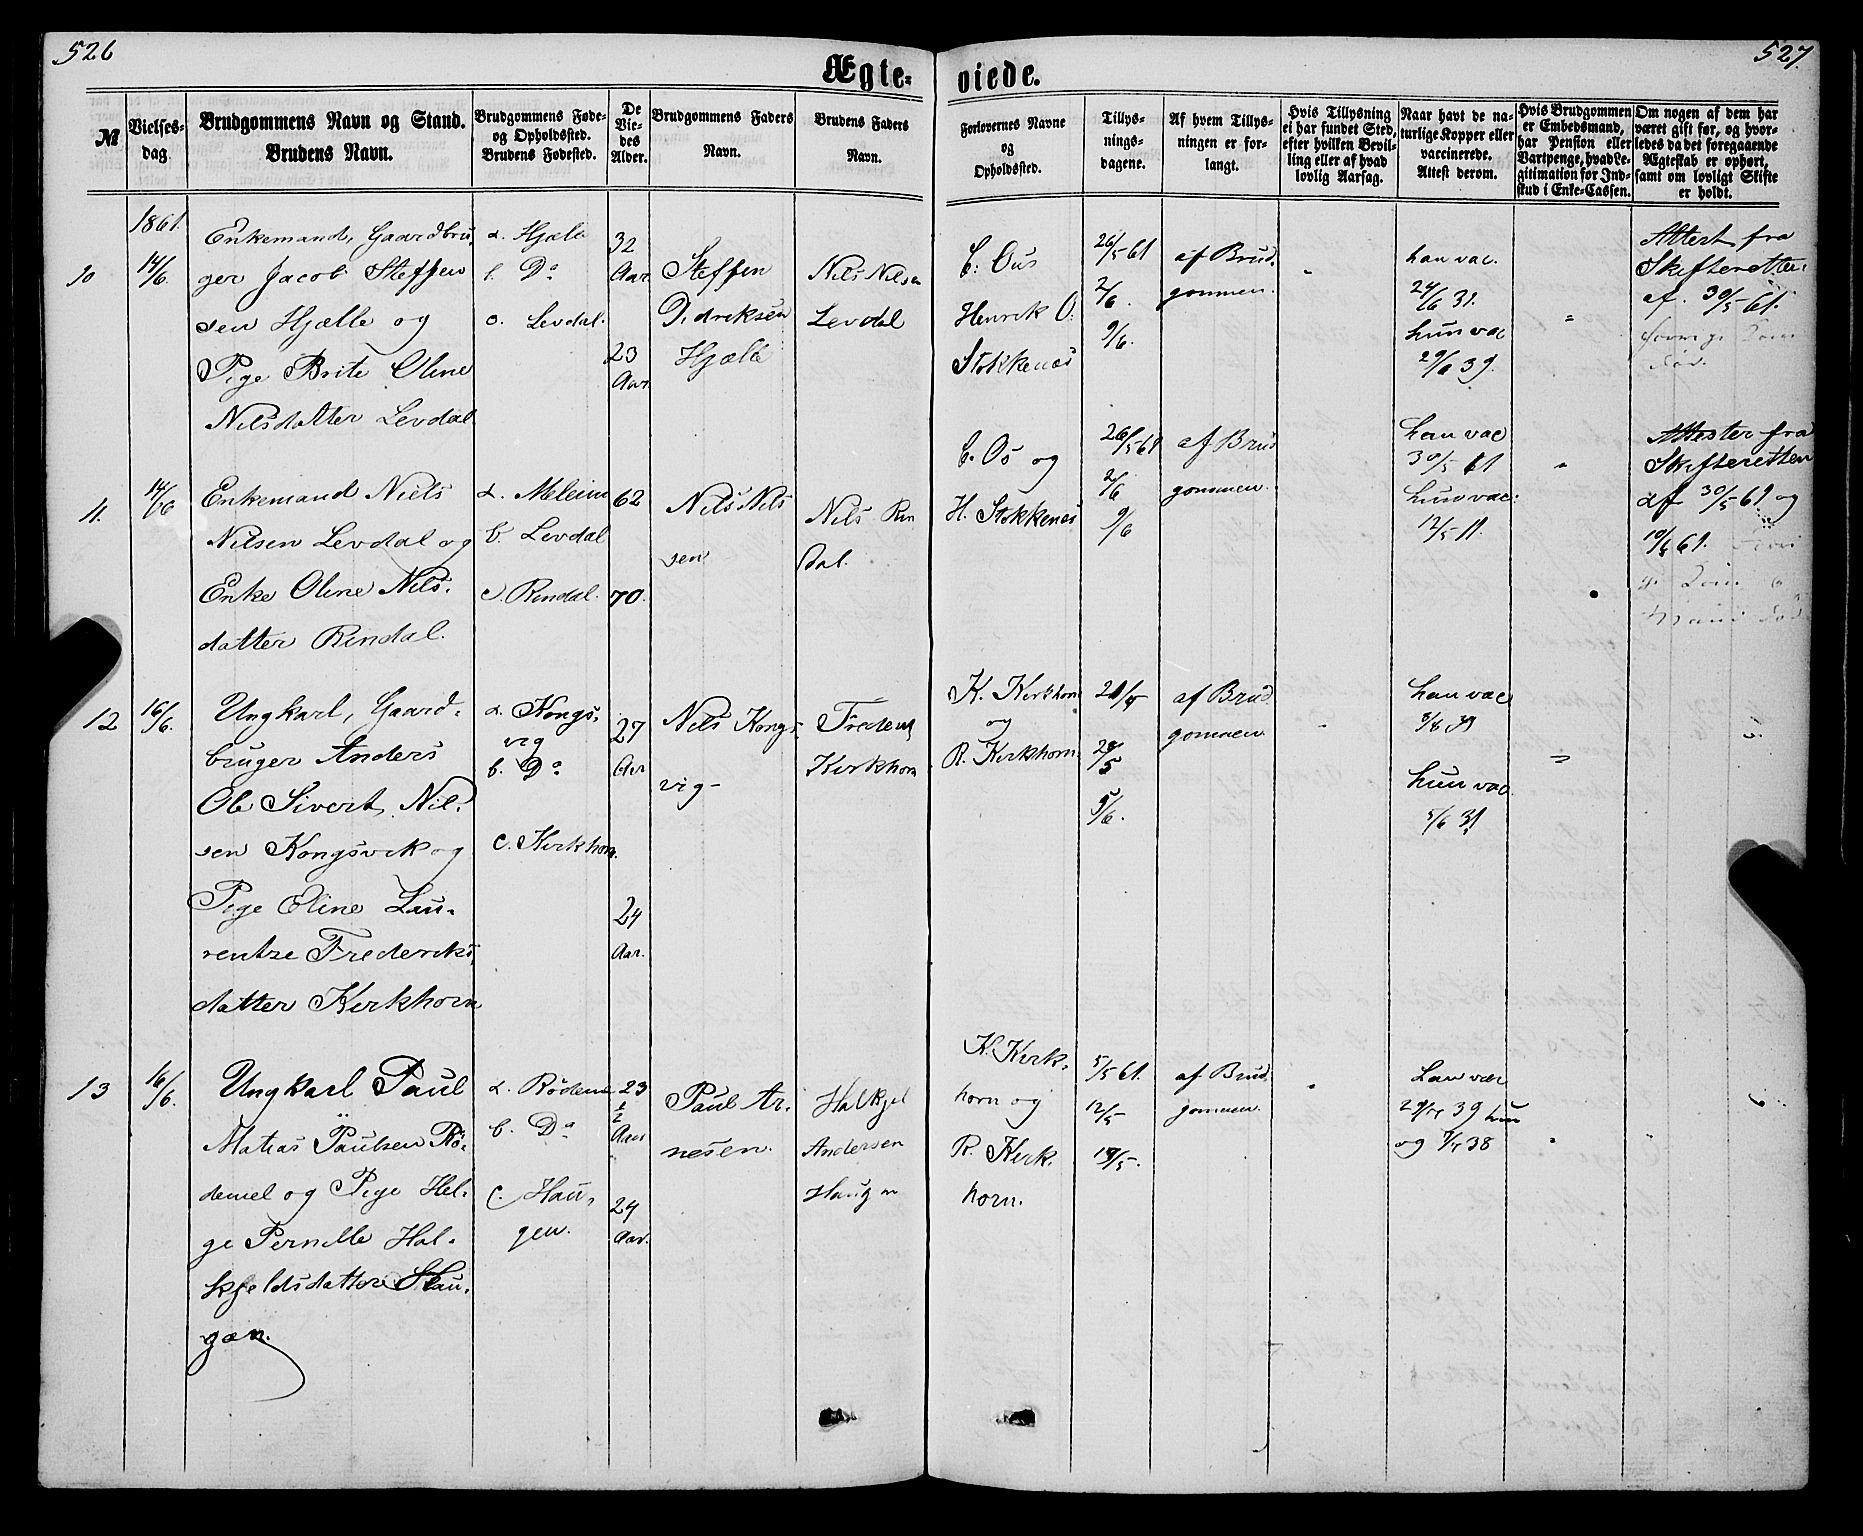 526
527.
Ægte-
viede.
№
Vielses-
dag.
Brudgommens Navn og Stand.
Brudens Navn.
Brudgommens Føde-
og Opholdssted.
Brudens Fødested.
De
Vie-
des
Alder.
Brudgommens Faders
Navn.
Brudens Faders
Navn.
Forlovernes Navne
og
Opholdssted.
Tillys-
nings-
dagene.
Af hvem Tillys-
ningen er for-
langt.
Hvis Tillysning
ei har fundet Sted,
efter hvilken Bevil-
ling eller af hvad
lovlig Aarsag.
Naar havt de na-
turlige Kopper eller
vaccinerede.
Attest derom.
Hvis Brudgommen
er Embedsmand,
har Pension eller
Vartpenge, hvad Le-
gitimation for Ind-
skud i Enke-Cassen.
Om nogen af dem har
været gift før, og hvor-
ledes da det foregaaende
Ægteskab er ophørt,
samt om lovligt Skifte
er holdt.
10
1861.
14/6.
Enkemand, Gaardbru-
ger Jacob Steffen
sen Hjelle og
Pige Brite Oline
Nilsdatter Levdal
a. Hjelle
b. Do
c. Levdal.
32
Aar
23
Aar
Steffen
Didriksen
Hjelle
Nils Nilsen
Levdal
C. Ous
Henrik O.
Stokkenæs
26/5 61
2/6.
9/6.
af Brud-
gommen.
han vac.
24/6 31.
hun vac
29/6 39.
Attest fra
Skifteretten
af 30/5 61.
11.
14/6
Enkemand Niels
Nilsen Levdal og
Enke Oline Nils-
datter Rindal.
a. Meleim
b. Levdal
c. Rindal.
62
70.
Nils Nils
sen
Nils Rin
dal.
C. Os og
H. Stokkenes
26/5 61
2/6
9/6
af Brud
gommen.
han vac
30/5 61
hun vac.
12/5 11.
Attester fra
Skifteretten
af 30/5 61 og
10/6 61.
12
16/6.
Ungkarl, Gaard-
bruger Anders
Ole Sivert Nil-
sen Kongsvik og
Pige Oline Lau-
rentze Frederiks-
datter Kirkhorn
a. Kongs-
vig
b. Do
c. Kirkhorn.
27
Aar
24
Aar.
Nils Kongs
vig
Kirkhorn
K. Kirkhorn
og
R. Kirkhorn
5/6.
af Brud
gommen
han vac
hun vac.
13
16/6.
Ungkarl Paul
Matias Paulsen Rö-
demel og Pige Hel-
ge Pernille Hal-
kjeldsdatter Hau-
gen.
b. Do
c. Hau-
gen.
23
1/2
Aar
24
Aar.
Paul Ar-
nesen.
Halkjel
Andersen
Haugen
K. Kirk-
horn og
R. Kirk-
horn.
5/5 61.
12/5
19/5.
af Brud-
gommen.
han vac
39 hun
og 38